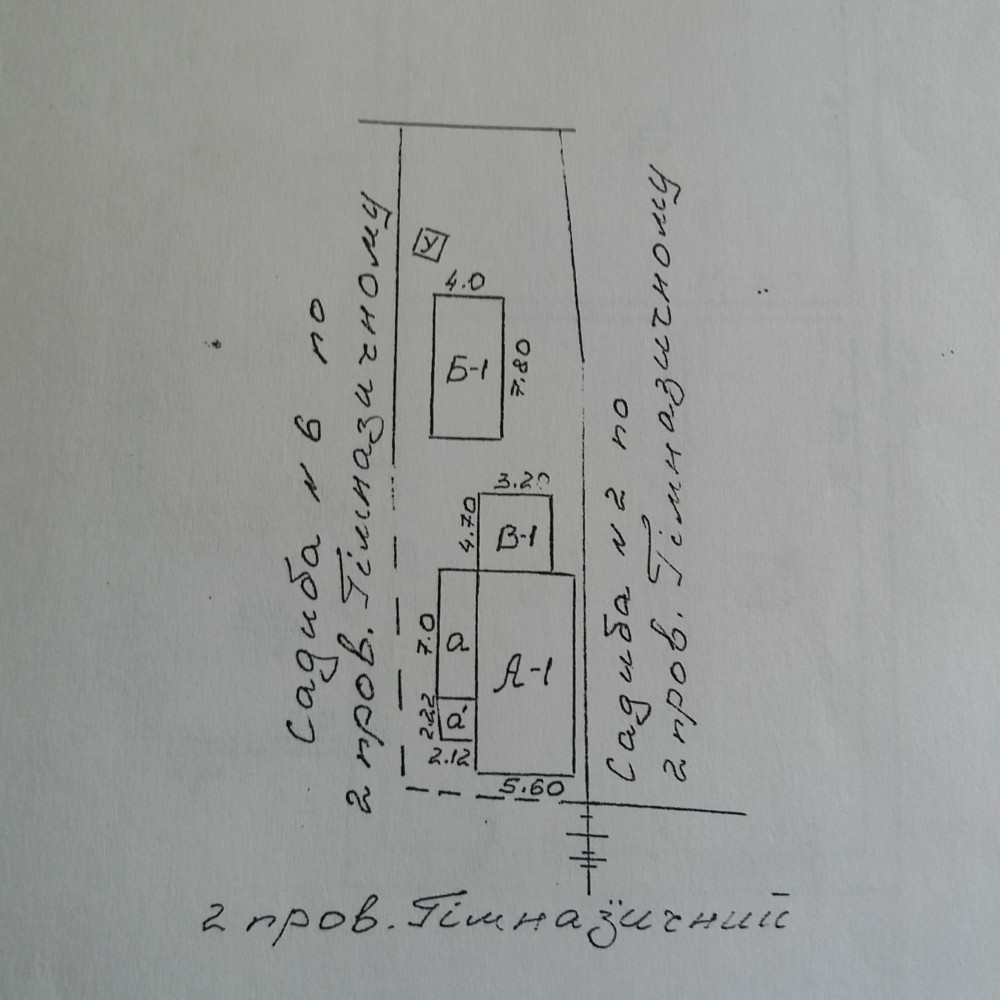 Садиба № 6 по
2 пров. Гімназичному
У
4.0
Б-1
7.80
3.20
4.70
В-1
7.0
а
А-1
2.22
а
2.12
5.60
Садиба № 2 по
2 пров. Гімназичному
2 пров. Гімназичний